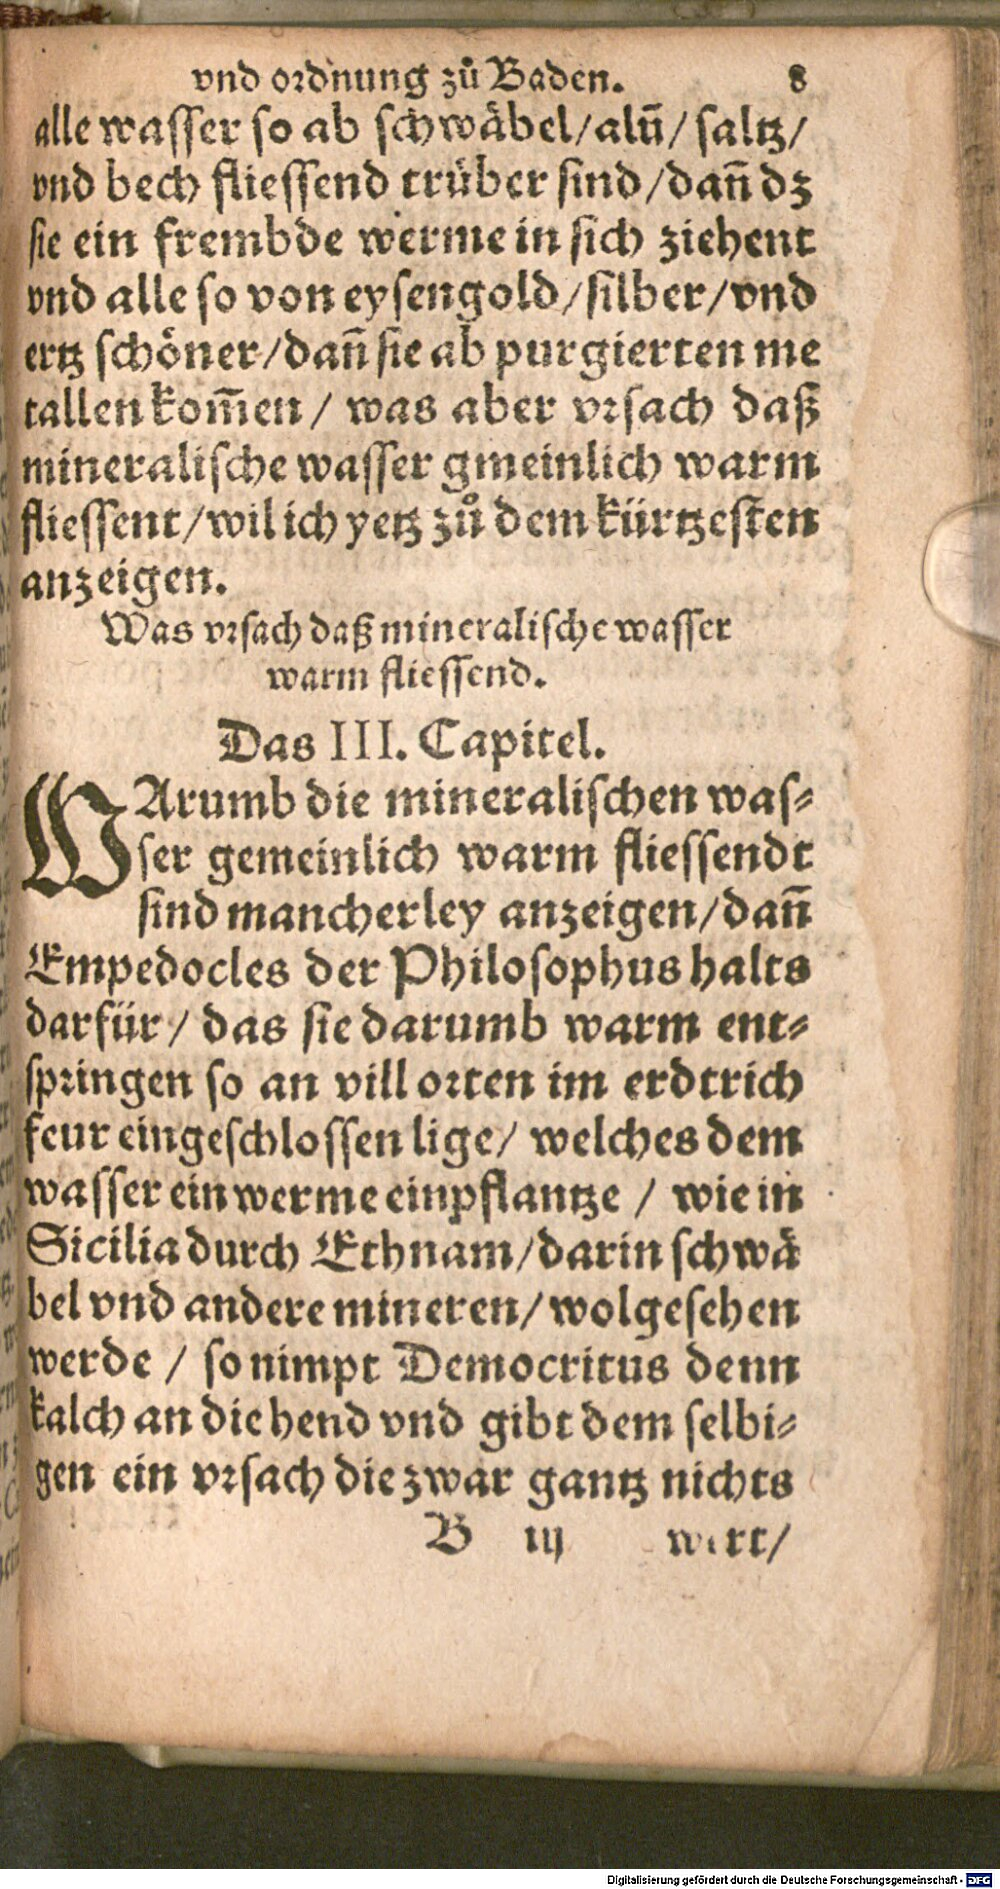 vnd ordnung zů Baden. 8
alle wasser so ab schwäbel/alū/ saltz/
vnd bech fliessend trüber sind/dañ dz
sie ein frembde werme in sich ziehent
vnd alle so von eysengold/silber/vnd
ertz schöner/dañ sie ab purgierten me
tallen kom̄en/ was aber vrsach daß
mineralische wasser gmeinlich warm
fliessent/wil ich yetz zů dem kürtzesten
anzeigen.
Was vrsach daß mineralische wasser
warm fliessend.
Das III. Capitel.
WArumb die mineralischen was⸗
ser gemeinlich warm fliessendt
sind mancherley anzeigen/dañ
Empedocles der Philosophus halts
darfür/ das sie darumb warm ent⸗
springen so an vill orten im erdtrich
feur eingeschlossen lige/ welches dem
wasser ein werme einpflantze / wie in
Sicilia durch Ethnam/darin schwä
bel vnd andere mineren/wolgesehen
werde / so nimpt Democritus denn
kalch an die hend vnd gibt dem selbi⸗
gen ein vrsach die zwar gantz nichts
B iij wert/
Digitalisierung gefördert durch die Deutsche Forschungsgemeinschaft - DFG